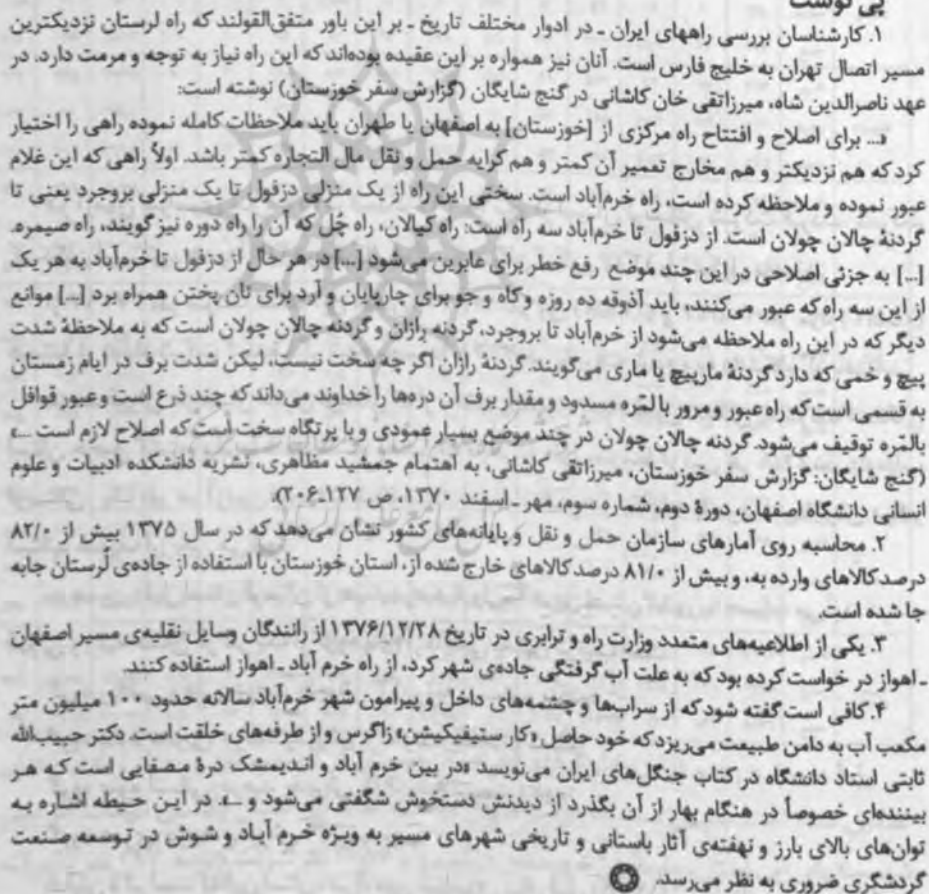 پی نوشت
۱. کارشناسان بررسی راههای ایران ـ در ادوار مختلف تاریخ ـ بر این باور متفق‌القولند که راه لرستان نزدیکترین
مسیر اتصال تهران به خلیج فارس است. آنان نیز همواره بر این عقیده بوده‌اند که این راه نیاز به توجه و مرمت دارد. در
عهد ناصرالدین شاه، میرزاتقی خان کاشانی در گنج شایگان (گزارش سفر خوزستان) نوشته است:
«... برای اصلاح و افتتاح راه مرکزی از [خوزستان] به اصفهان یا طهران باید ملاحظات کامله نموده راهی را اختیار
کرد که هم نزدیکتر و هم مخارج تعمیر آن کمتر و هم کرایه حمل و نقل مال التجاره کمتر باشد. اولاً راهی که این غلام
عبور نموده و ملاحظه کرده است، راه خرم‌آباد است. سختی این راه از یک منزلی دزفول تا یک منزلی بروجرد یعنی تا
گردنهٔ چالان چولان است. از دزفول تا خرم‌آباد سه راه است: راه کیالان، راه چُل که آن را راه دوره نیز گویند، راه صیمره.
[...] به جزئی اصلاحی در این چند موضع رفع خطر برای عابرین می‌شود [...] در هر حال از دزفول تا خرم‌آباد به هر یک
از این سه راه که عبور می‌کنند، باید آذوقه ده روزه و کاه و جو برای چارپایان و آرد برای نان پختن همراه برد [...] موانع
دیگر که در این راه ملاحظه می‌شود از خرم‌آباد تا بروجرد، گردنه رازان و گردنه چالان چولان است که به ملاحظهٔ شدت
پیچ و خمی که دارد گردنهٔ مارپیچ یا ماری می‌گویند. گردنهٔ رازان اگر چه سخت نیست، لیکن شدت برف در ایام زمستان
به قسمی است که راه عبور و مرور بالمّره مسدود و مقدار برف آن دره‌ها را خداوند می‌داند که چند ذرع است و عبور قوافل
بالمّره توقیف می‌شود. گردنه چالان چولان در چند موضع بسیار عمودی و با پرتگاه سخت است که اصلاح لازم است ...»
(گنج شایگان: گزارش سفر خوزستان، میرزاتقی کاشانی، به اهتمام جمشید مظاهری، نشریه دانشکده ادبیات و علوم
انسانی دانشگاه اصفهان، دورهٔ دوم، شماره سوم، مهر ـ اسفند ۱۳۷۰، ص ۱۲۷ـ۲۰۶).
۲. محاسبه روی آمارهای سازمان حمل و نقل و پایانه‌های کشور نشان می‌دهد که در سال ۱۳۷۵ بیش از ۸۲/۰
درصد کالاهای وارده به، و بیش از ۸۱/۰ درصد کالاهای خارج شده از، استان خوزستان با استفاده از جاده‌ی لُرستان جابه
جا شده است.
۳. یکی از اطلاعیه‌های متعدد وزارت راه و ترابری در تاریخ ۱۳۷۶/۱۲/۲۸ از رانندگان وسایل نقلیه‌ی مسیر اصفهان
ـ اهواز در خواست کرده بود که به علت آب گرفتگی جاده‌ی شهر کرد، از راه خرم آباد ـ اهواز استفاده کنند.
۴. کافی است گفته شود که از سراب‌ها و چشمه‌های داخل و پیرامون شهر خرم‌آباد سالانه حدود ۱۰۰ میلیون متر
مکعب آب به دامن طبیعت می‌ریزد که خود حاصل «کارستیفیکیشن» زاگرس و از طرفه‌های خلقت است. دکتر حبیب‌الله
ثابتی استاد دانشگاه در کتاب جنگل‌های ایران می‌نویسد «در بین خرم آباد و اندیمشک درهٔ مصفایی است که هر
بیننده‌ای خصوصاً در هنگام بهار از آن بگذرد از دیدنش دستخوش شگفتی می‌شود و ...». در این حیطه اشاره به
توان‌های بالای بارز و نهفته‌ی آثار باستانی و تاریخی شهرهای مسیر به ویژه خرم آباد و شوش در توسعه صنعت
گردشگری ضروری به نظر می‌رسد.